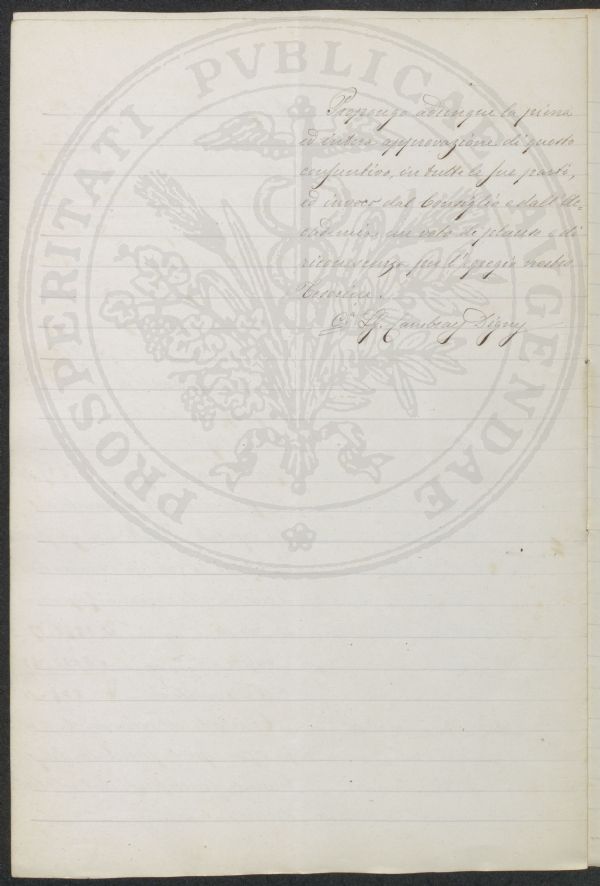 PROSPERITATI PVBLICAE AVGENDAE
Propongo adunque la piena
ed intera approvazione di questo
consuntivo, in tutte le sue parti,
ed invoco dal Consiglio e dall'Ac-
cademia, un voto di plauso e di
riconoscenza per l'egregio nostro
Tesoriere.
Cambray Digny